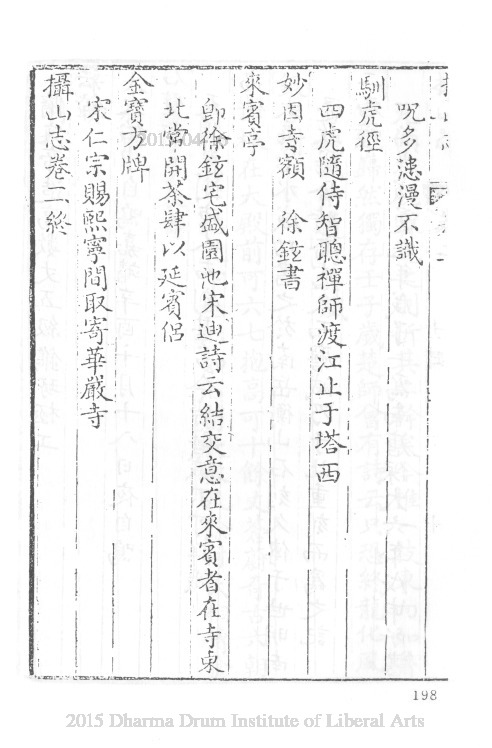 呪多漶漫不識
馴虎徑
四虎隨侍智聰禪師渡江止于塔西
妙因寺額　徐鉉書
來賓亭
卽徐鉉宅盛園池宋迪詩云結交意在來賓者在寺東
北常開茶肆以延賓侶
金寶方牌
宋仁宗賜熙寧間取寄華嚴寺
攝山志卷二終
198
2015 Dharma Drum Institute of Liberal Arts